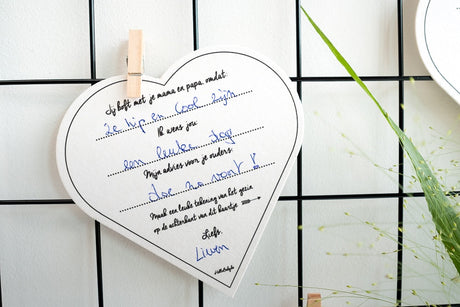 Jij boft met je mama en papa, omdat:
ze hip en cool zijn
Ik wens jou:
een leuke dag
Mijn advies voor je ouders:
doe zo voort!
Maak een leuke tekening van het gezin
op de achterkant van dit kaartje
Liefs,
Lieven